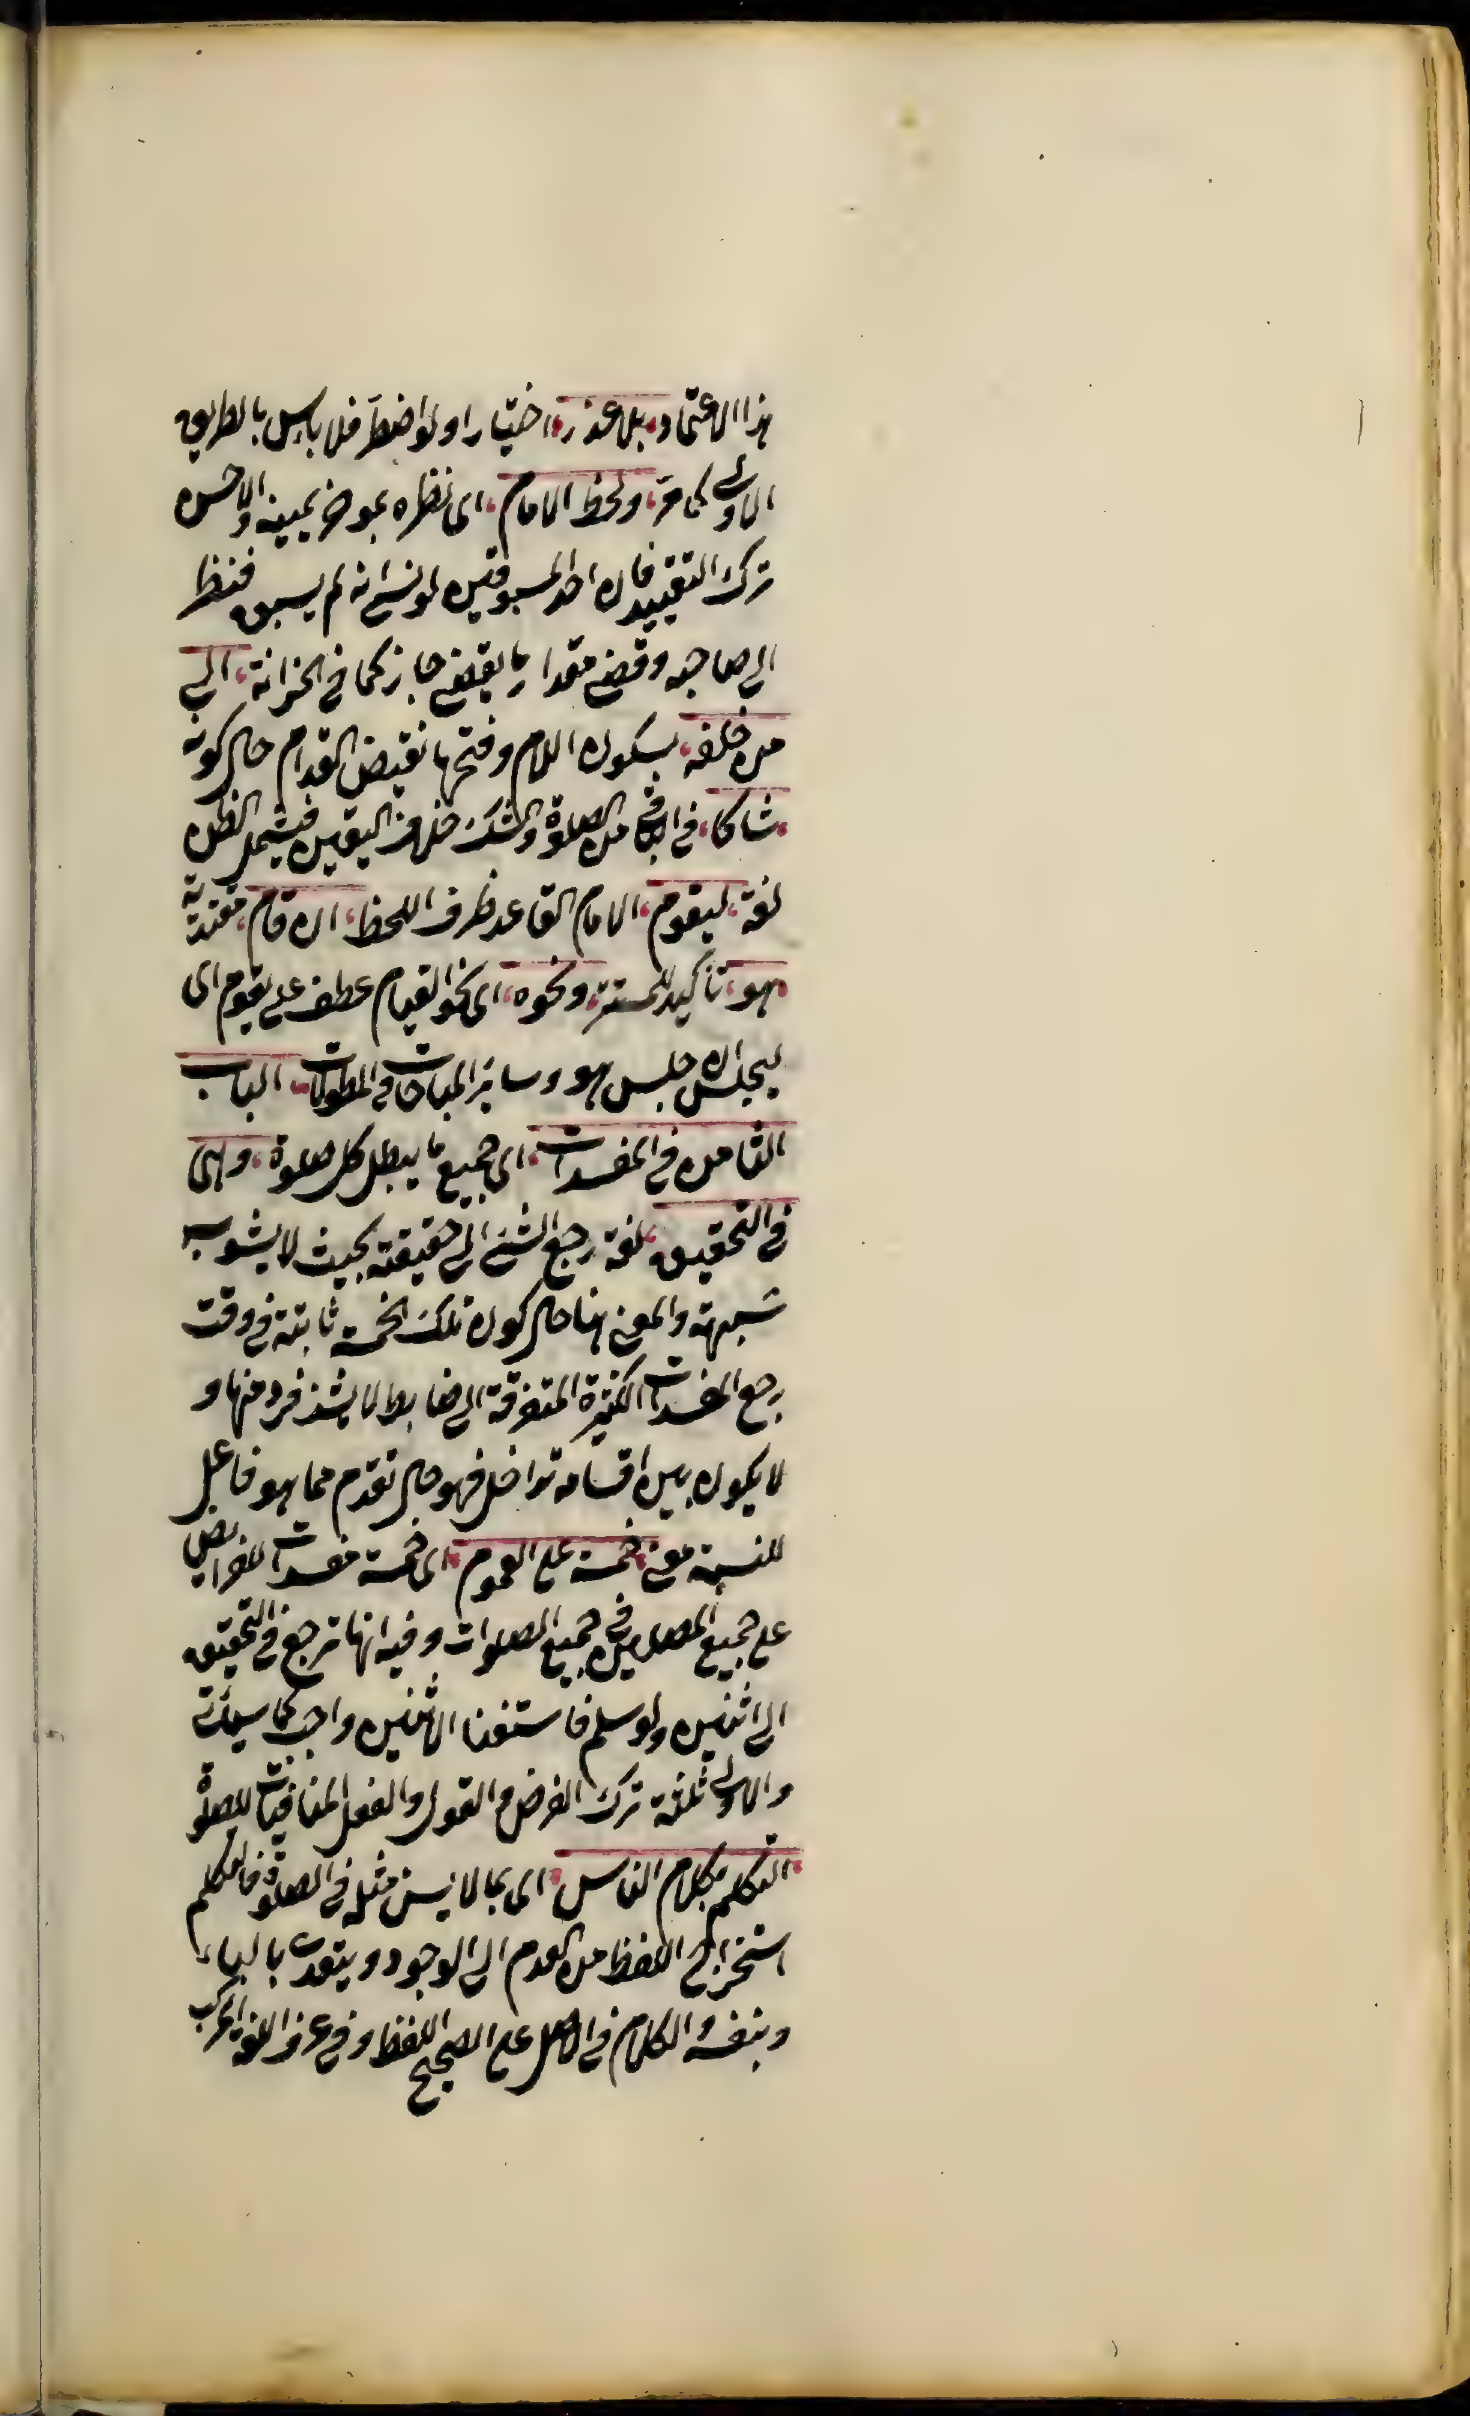 هذا الاعتماد بلا عذر اختيارا ولو اضطر فلا باس بالطريق
الاولى كما مر ولحظ الامام اى نظره بموخر يمينه والاحسن
ترك التقييد فان احد المسبوقين لو نسى انه لم يسبق فنظر
الى صاحبه وقضى مقدار ما يقضى جاز كما فى الخزانة الى
من خلفه بسكون اللام وفتحها نقيض القدام حال كونه
شاكا فى من الصلوة والشك خلاف اليقين فيشمل الظن
لغة ليقوم الامام القاعد ظرف اللحظ ان قام مقتديه
هو تأكيد للمستتر ونحوه اى نحو القيام عطف على يقوم اى
ليجلس ان جلس هو وسائر المباحات فى المطولات الباب
الثامن فى المفسدات اى جميع ما يبطل كل صلوة وهى
فى التحقيق لغة رجع الشئ الى حقيقته بحيث لا يشوب
شبهته والمعنى هنا حال كون تلك الخمسة ثابتة فى وقت
رجع المفسدات الكثيرة المتفرقة الى ضابط لا يشذ فرد منها و
لا يكون بين اقسامه تداخل فهو حال تقدم مما هو فاعل
للنسبة معنى خمسة على العموم اى خمسة مفسدات للفرائض
على جميع المصلين فى جميع الصلوات وفيه انها ترجع فى التحقيق
الى اثنين ولو سلم فاستثنا الاثنين واجب كما سيأتى
والاولى ثلثة ترك الفرض والقول والفعل المنافيات للصلوة
التكلم بكلام الناس اى بما لا يسن مثله فى الصلوة فالتكلم
استخراج اللفظ من العدم الى الوجود ويتعدى بالباء
وبنفسه والكلام فى الاصل على الصحيح اللفظ وفى عرف اللغة المركب